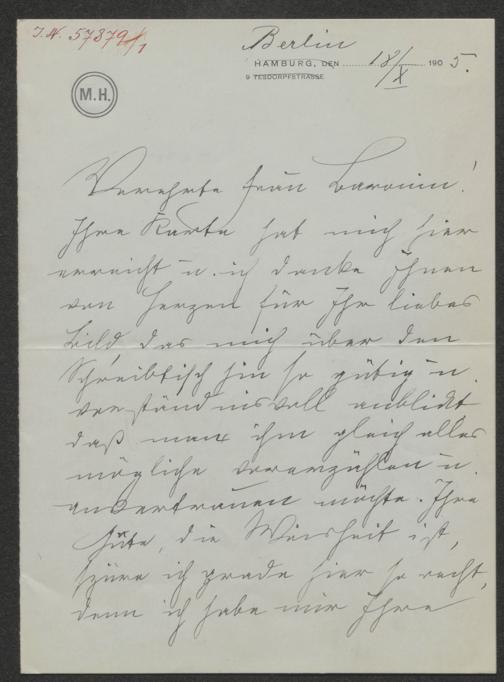 J.N. 57879/1
Berlin
HAMBURG, DEN 18/X 1905.
9 TESDORPFSTRASSE
M.H.
Verehrte Frau Baronin!
Ihre Karte hat mich hier
erreicht u. ich danke Ihnen
von Herzen für Ihr liebes
Bild, das mich über den
Schreibtisch hin so gütig u.
verständnisvoll anblickt
daß man ihm gleich alles
mögliche vorerzählen u.
anvertrauen möchte. Ihre
Güte, die Weisheit ist,
spüre ich grade hier so recht,
denn ich habe mir Ihre